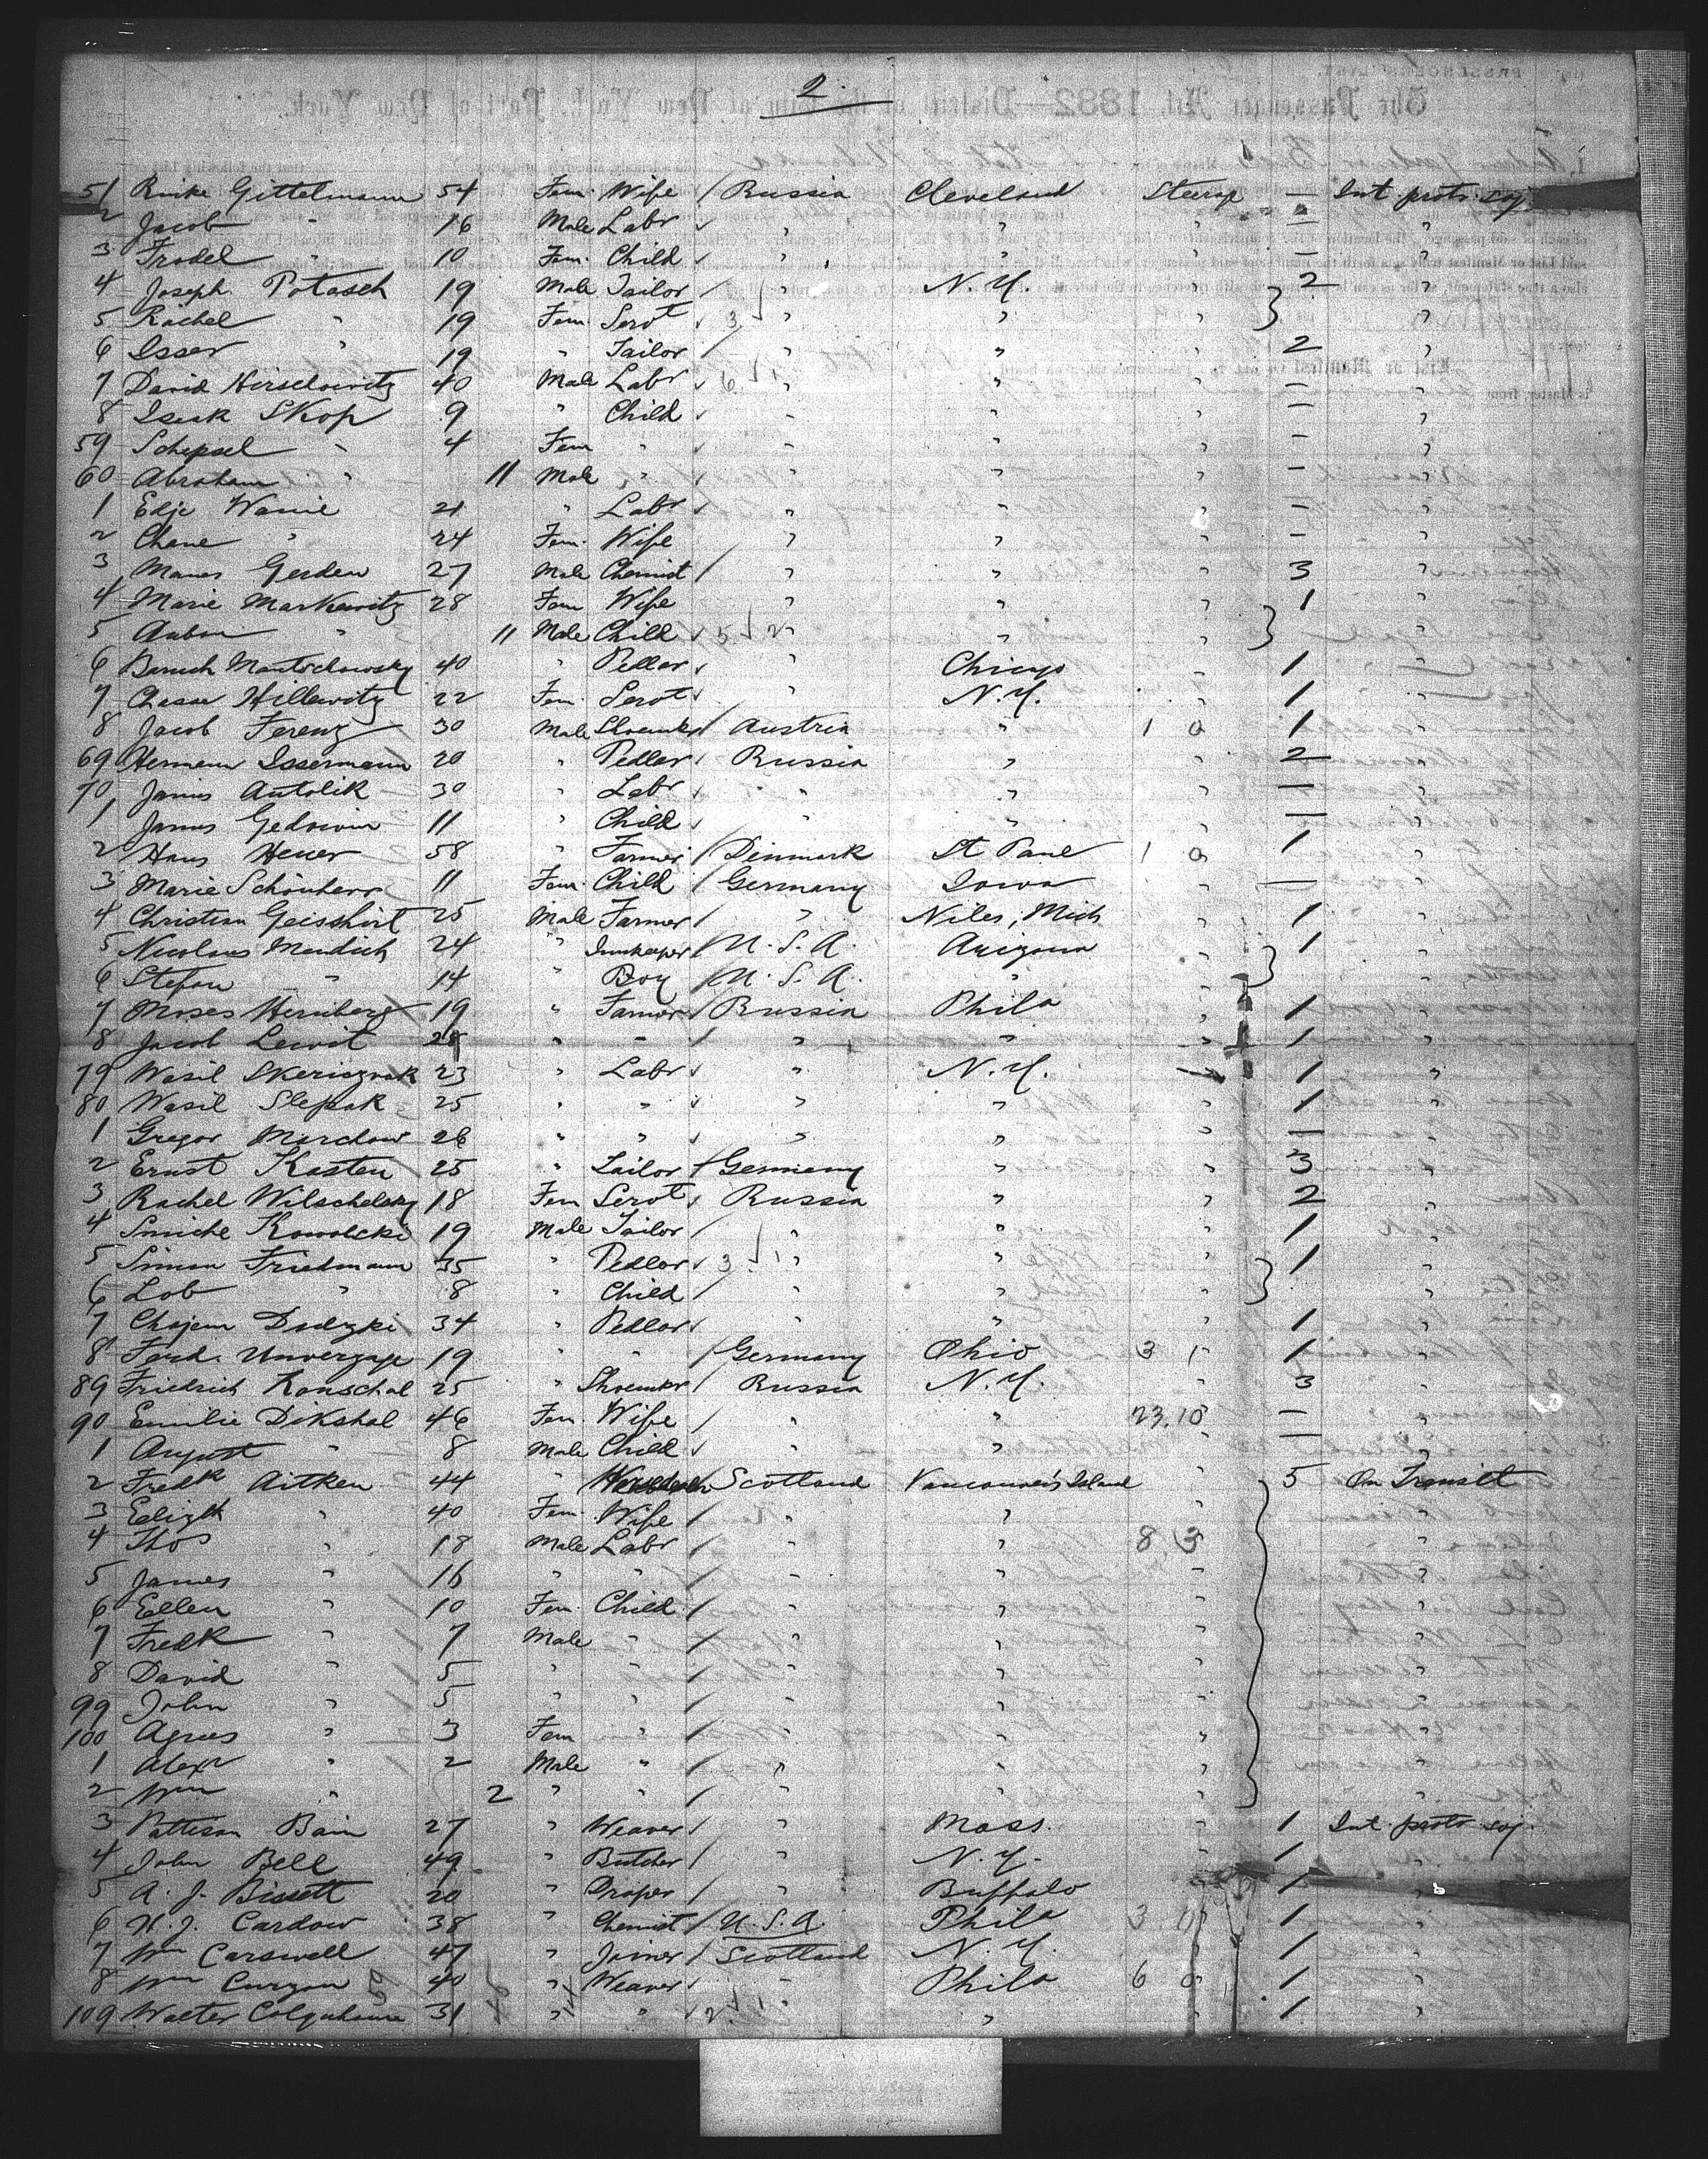 2.
51 Rinke Gittelmann 54 Fem. Wife / Russia Cleveland Steerage — Int protr soj
2 Jacob " 16 Male Labr " " " — "
3 Frodel " 10 Fem. Child " " " — "
4 Joseph Potasch 19 Male Tailor / " N.Y. " 2 "
5 Rachel " 19 Fem. Servt 3 " " " "
6 Isser " 19 " Tailor / " " " 2 "
7 David Hirschowitz 40 Male Labr 6 " " — "
8 Isaak Skop 9 " Child " " " — "
59 Schepsel " 4 Fem " " " " — "
60 Abraham " 11 Male " " " " — "
1 Edje Warnie 21 " Labr " " " — "
2 Chane " 24 Fem. Wife " " " — "
3 Manes Gerden 27 Male Chemist / " " " 3 "
4 Marie Markewitz 28 Fem Wife " " " 1 "
5 " 11 Male Child 5 2 " " "
6 Baruch 40 " Pedlar " Chicago " 1 "
7 Chasse Hillewitz 22 Fem. Servt " N.Y. " 1 "
8 Jacob Ferenz 30 Male Shoemkr / Austria " 1 0 1 "
69 Hermann Issermann 20 " Pedlar Russia " " 2 "
70 Janus Antolik 30 " Labr " " " — "
1 Janus Gedrowin 11 " Child " " " — "
2 Hans Heuer 58 " Farmer / Dinmark St Paul 1 0 1 "
3 Marie Schönherr 11 Fem. Child / Germany Iowa " — "
4 Christian Geisshirt 25 Male Farmer / " Niles, Mich " 1 "
5 Nicolaus Mandich 24 " Innkeeper / U.S.A. Arizona " 1 "
6 Stefan " 14 " Boy / U.S.A. "
7 Moses Hernberg 19 " Farmer / Russia Phila " 1 "
8 Jacob Lewit 28 " " / " " " 1 "
79 Wasil 23 " Labr " N.Y. " 1 "
80 Wasil Slepak 25 " " " " " 1 "
1 Gregor Marchow 26 " " " " " — "
2 Ernst Kasten 25 " Tailor / Germany " " 3 "
3 Rachel Wilschelsky 18 Fem Servt Russia " " 2 "
4 Smiche Kowolcki 19 Male Tailor / " " " 1 "
5 Simon Friedmann 35 " Pedlar 3 1 " " " 1 "
6 Lob " 8 " Child / " " " "
7 Chajem Dudzki 34 " Pedlar " " " 1 "
8 Ferd. Unverzage 19 " " / Germany Ohio 3 1 1 "
89 Friedrich Konschal 25 " Shoemkr / Russia N.Y. " 3 "
90 Emilie Dikshal 46 Fem. Wife / " " 23.10 — "
1 August " 8 Male Child " " — "
2 Fredk Aitken 44 " Scotland Vancouver's Island " 5 On Transitt
3 Elizth " 40 Fem. Wife / " " "
4 Thos " 18 Male Labr / " " 8 3 "
5 James " 16 " " / " " " "
6 Ellen " 10 Fem. Child / " " " "
7 Fredk " 7 Male " / " " " "
8 David " 5 " " / " " " "
99 John " 5 " " / " " " "
100 Agnes " 3 Fem " / " " " "
1 Alexr " 2 Male " / " " " "
2 Wm " 2 " " / " " " "
3 Pattison Bain 27 " Weaver / " Mass. " 1 Int. protr soj.
4 John Bell 49 " Butcher / " N.Y. " 1 "
5 A. J. Bissett 20 " Draper / " Buffalo " 1
6 W. J. Cardow 38 " Chemist / U.S.A. Phila 3 0 1 "
7 Wm Carswell 47 " Joiner / Scotland N.Y. " 1 "
8 Wm Curzon 40 " Weaver " Phila 6 0 1 "
109 Walter Colquhoune 31 " " 2 1 " " 1 "